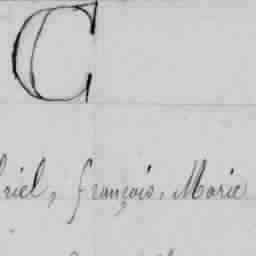 C
riel, françois, Marie